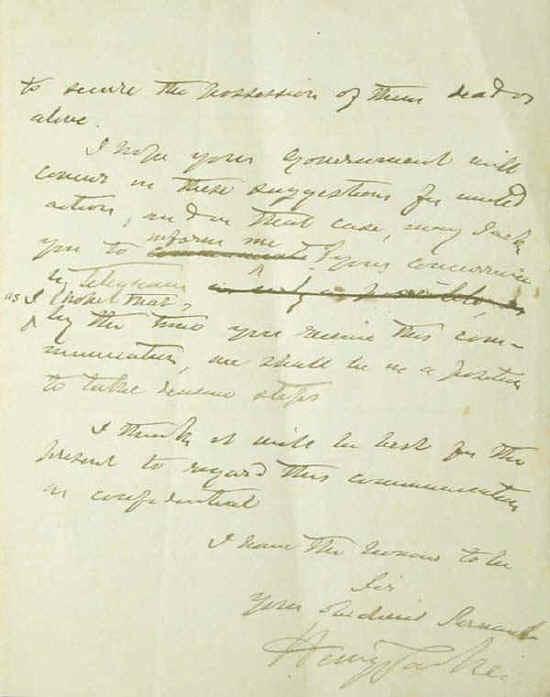 to secure the possession of them dead or
alive.
I hope your Government will
concur in these suggestions for united
action, and in that case, may I ask
you to inform me of your concurrence
by telegram
as I expect that,
by the time you receive this com-
munication, we shall be in a position
to take steps
I think it will be best for the
present to regard this communication
as confidential
I have the honor to be
Sir
Your Obedient Servant
Henry Parkes